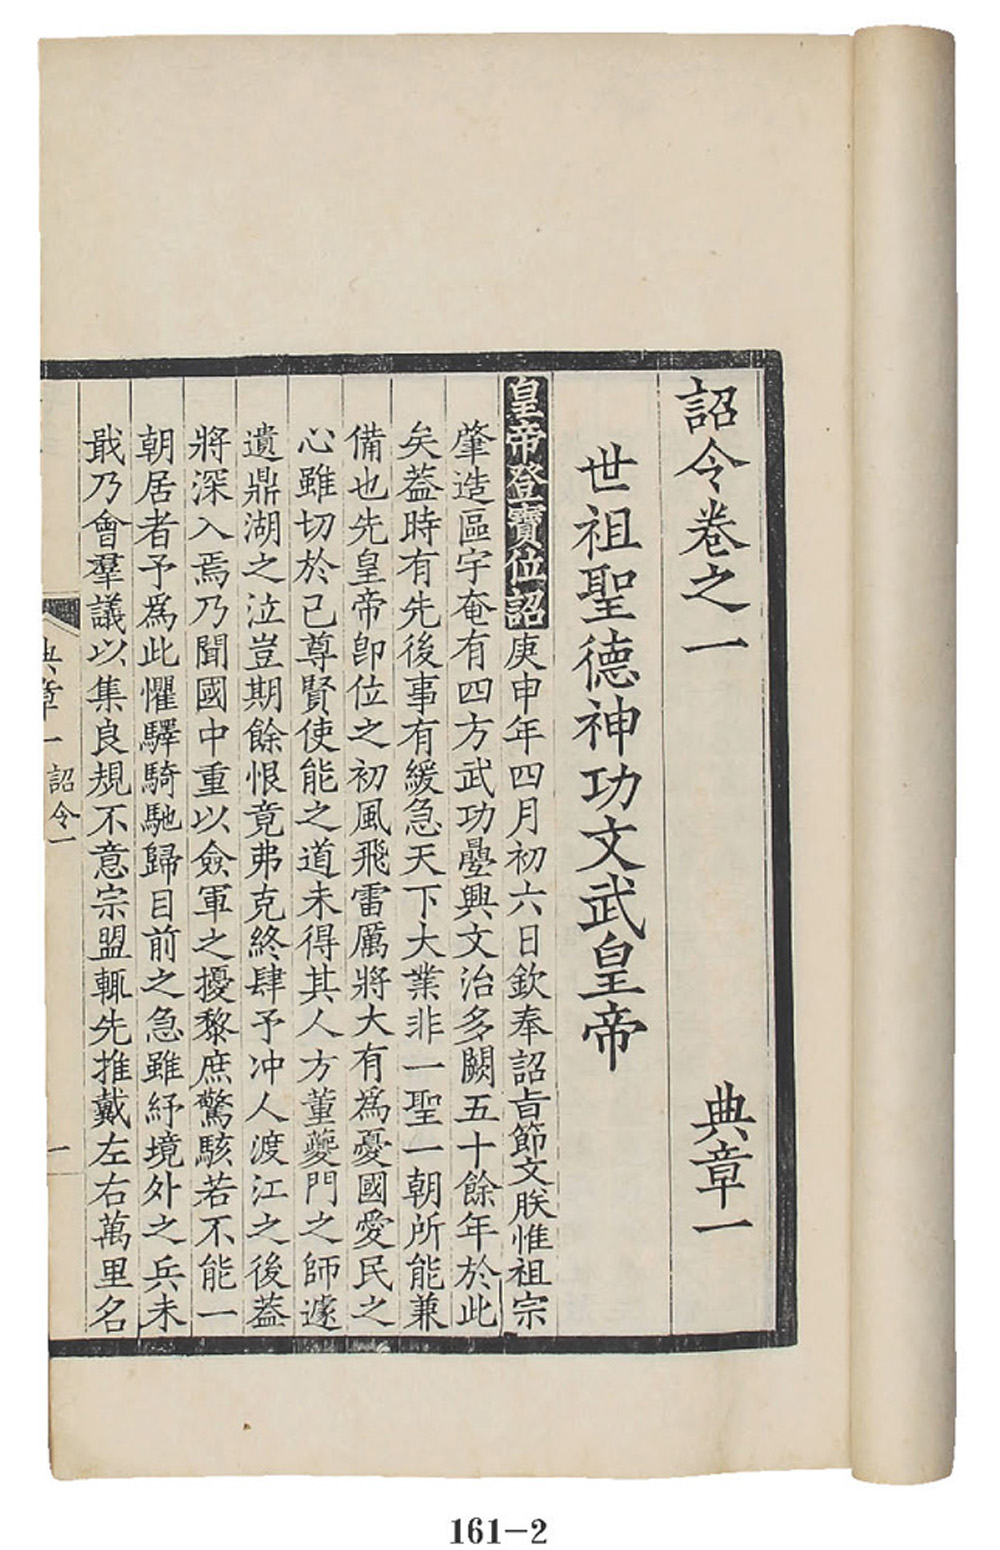 詔令卷之一 典章一
世祖聖德神功文武皇帝
皇帝登寶位詔庚申年四月初六日欽奉詔㫖節文朕惟祖宗
肇造區宇奄有四方武功疊興文治多闕五十餘年於此
矣蓋時有先後事有緩急天下大業非一聖一朝所能兼
備也先皇帝卽位之初風飛雷厲將大有爲憂國愛民之
心雖切於己尊賢使能之道未得其人方董夔門之師遽
遺鼎湖之泣豈期餘恨竟弗克終肆予冲人渡江之後蓋
將深入焉乃聞國中重以僉軍之擾黎庶驚駭若不能一
朝居者予爲此懼驛騎馳歸目前之急雖紓境外之兵未
戢乃會羣議以集良規不意宗盟輒先推戴左右萬里名
典章一 詔令一 一
161-2